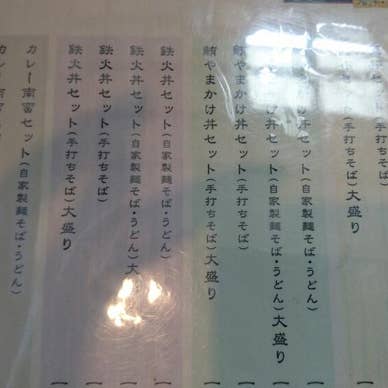 (手打ちそば)
セット(手打ちそば)大盛り
セット(自家製麺そば・うどん)
丼セット(自家製麺そば・うどん)大盛り
鮪やまかけ丼セット(手打ちそば)
鮪やまかけ丼セット(手打ちそば)大盛り
鉄火丼セット(自家製麺そば・うどん)
鉄火丼セット(自家製麺そば・うどん)大
鉄火丼セット(手打ちそば)
鉄火丼セット(手打ちそば)大盛り
カレー南蛮セット(自家製麺そば・うどん)
カレー南蛮